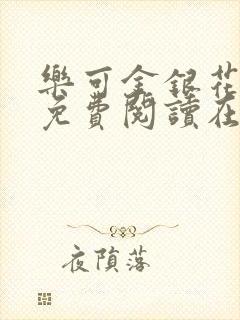 樂可金銀花
免費閱讀在
夜隕落